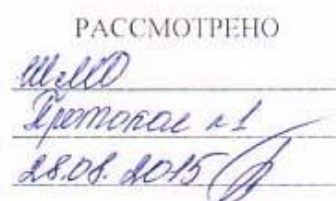 РАССМОТРЕНО
ШМО
Протокол №1
28.08.2015